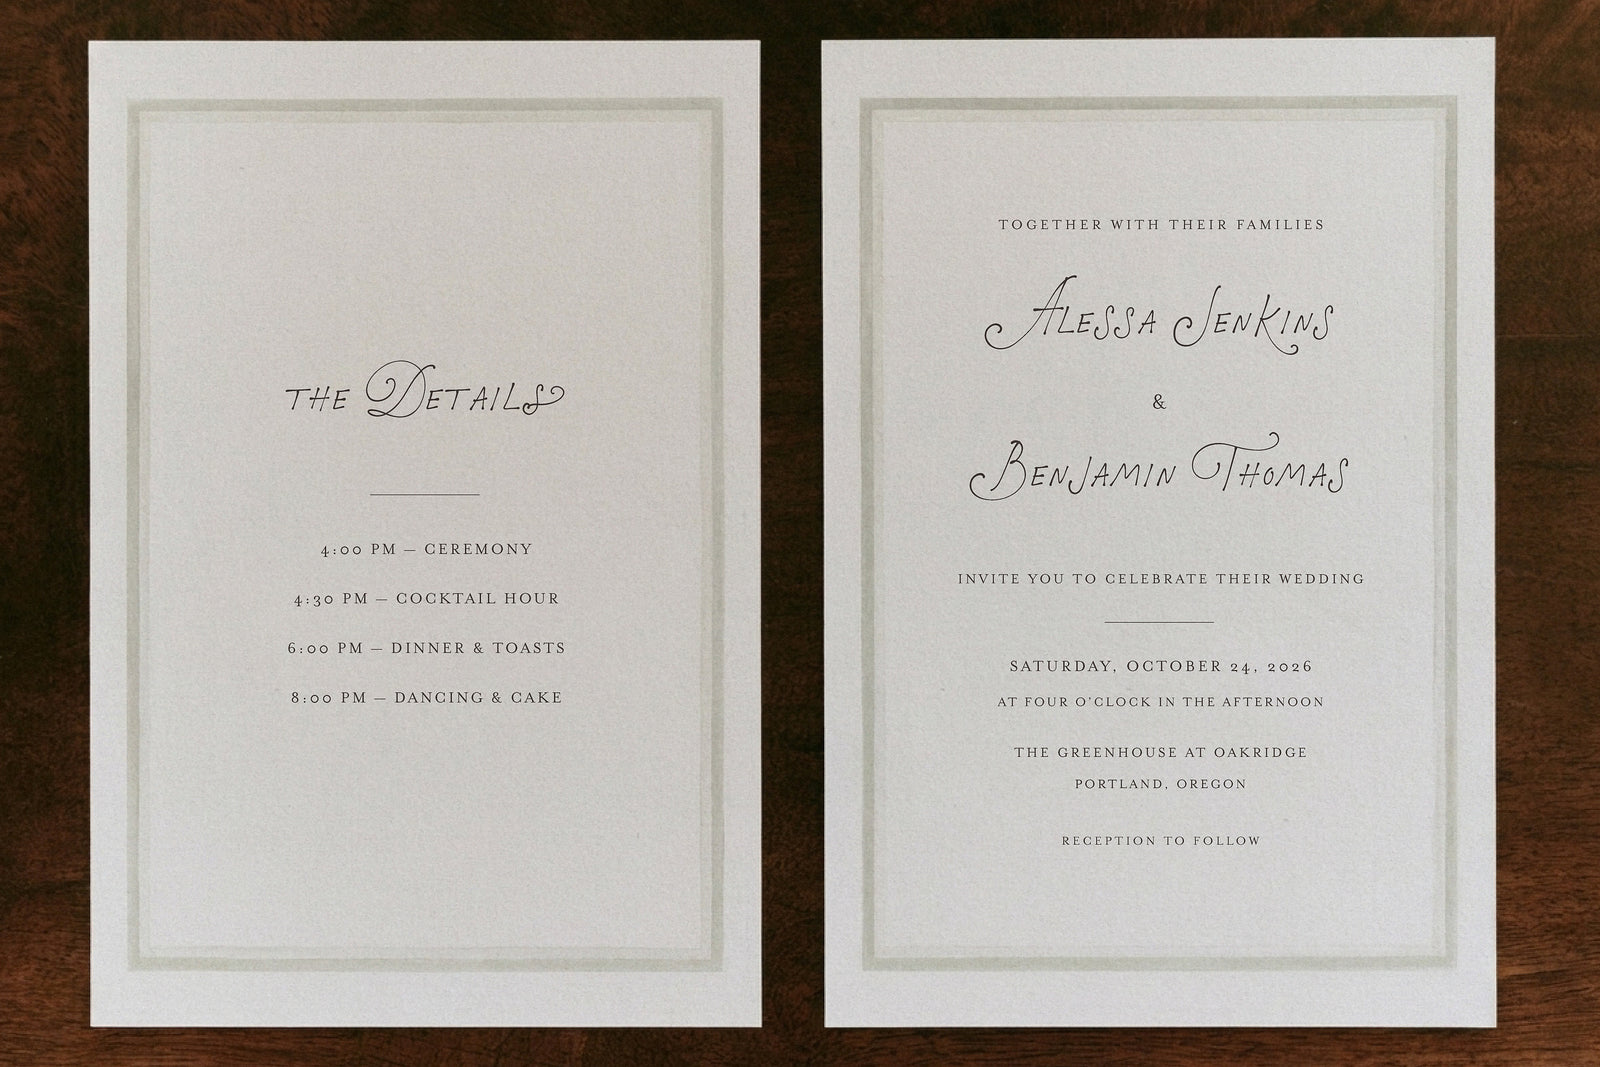 THE DETAILS
4:00 PM — CEREMONY
4:30 PM — COCKTAIL HOUR
6:00 PM — DINNER & TOASTS
8:00 PM — DANCING & CAKE
TOGETHER WITH THEIR FAMILIES
ALESSA JENKINS
&
BENJAMIN THOMAS
INVITE YOU TO CELEBRATE THEIR WEDDING
SATURDAY, OCTOBER 24, 2026
AT FOUR O'CLOCK IN THE AFTERNOON
THE GREENHOUSE AT OAKRIDGE
PORTLAND, OREGON
RECEPTION TO FOLLOW